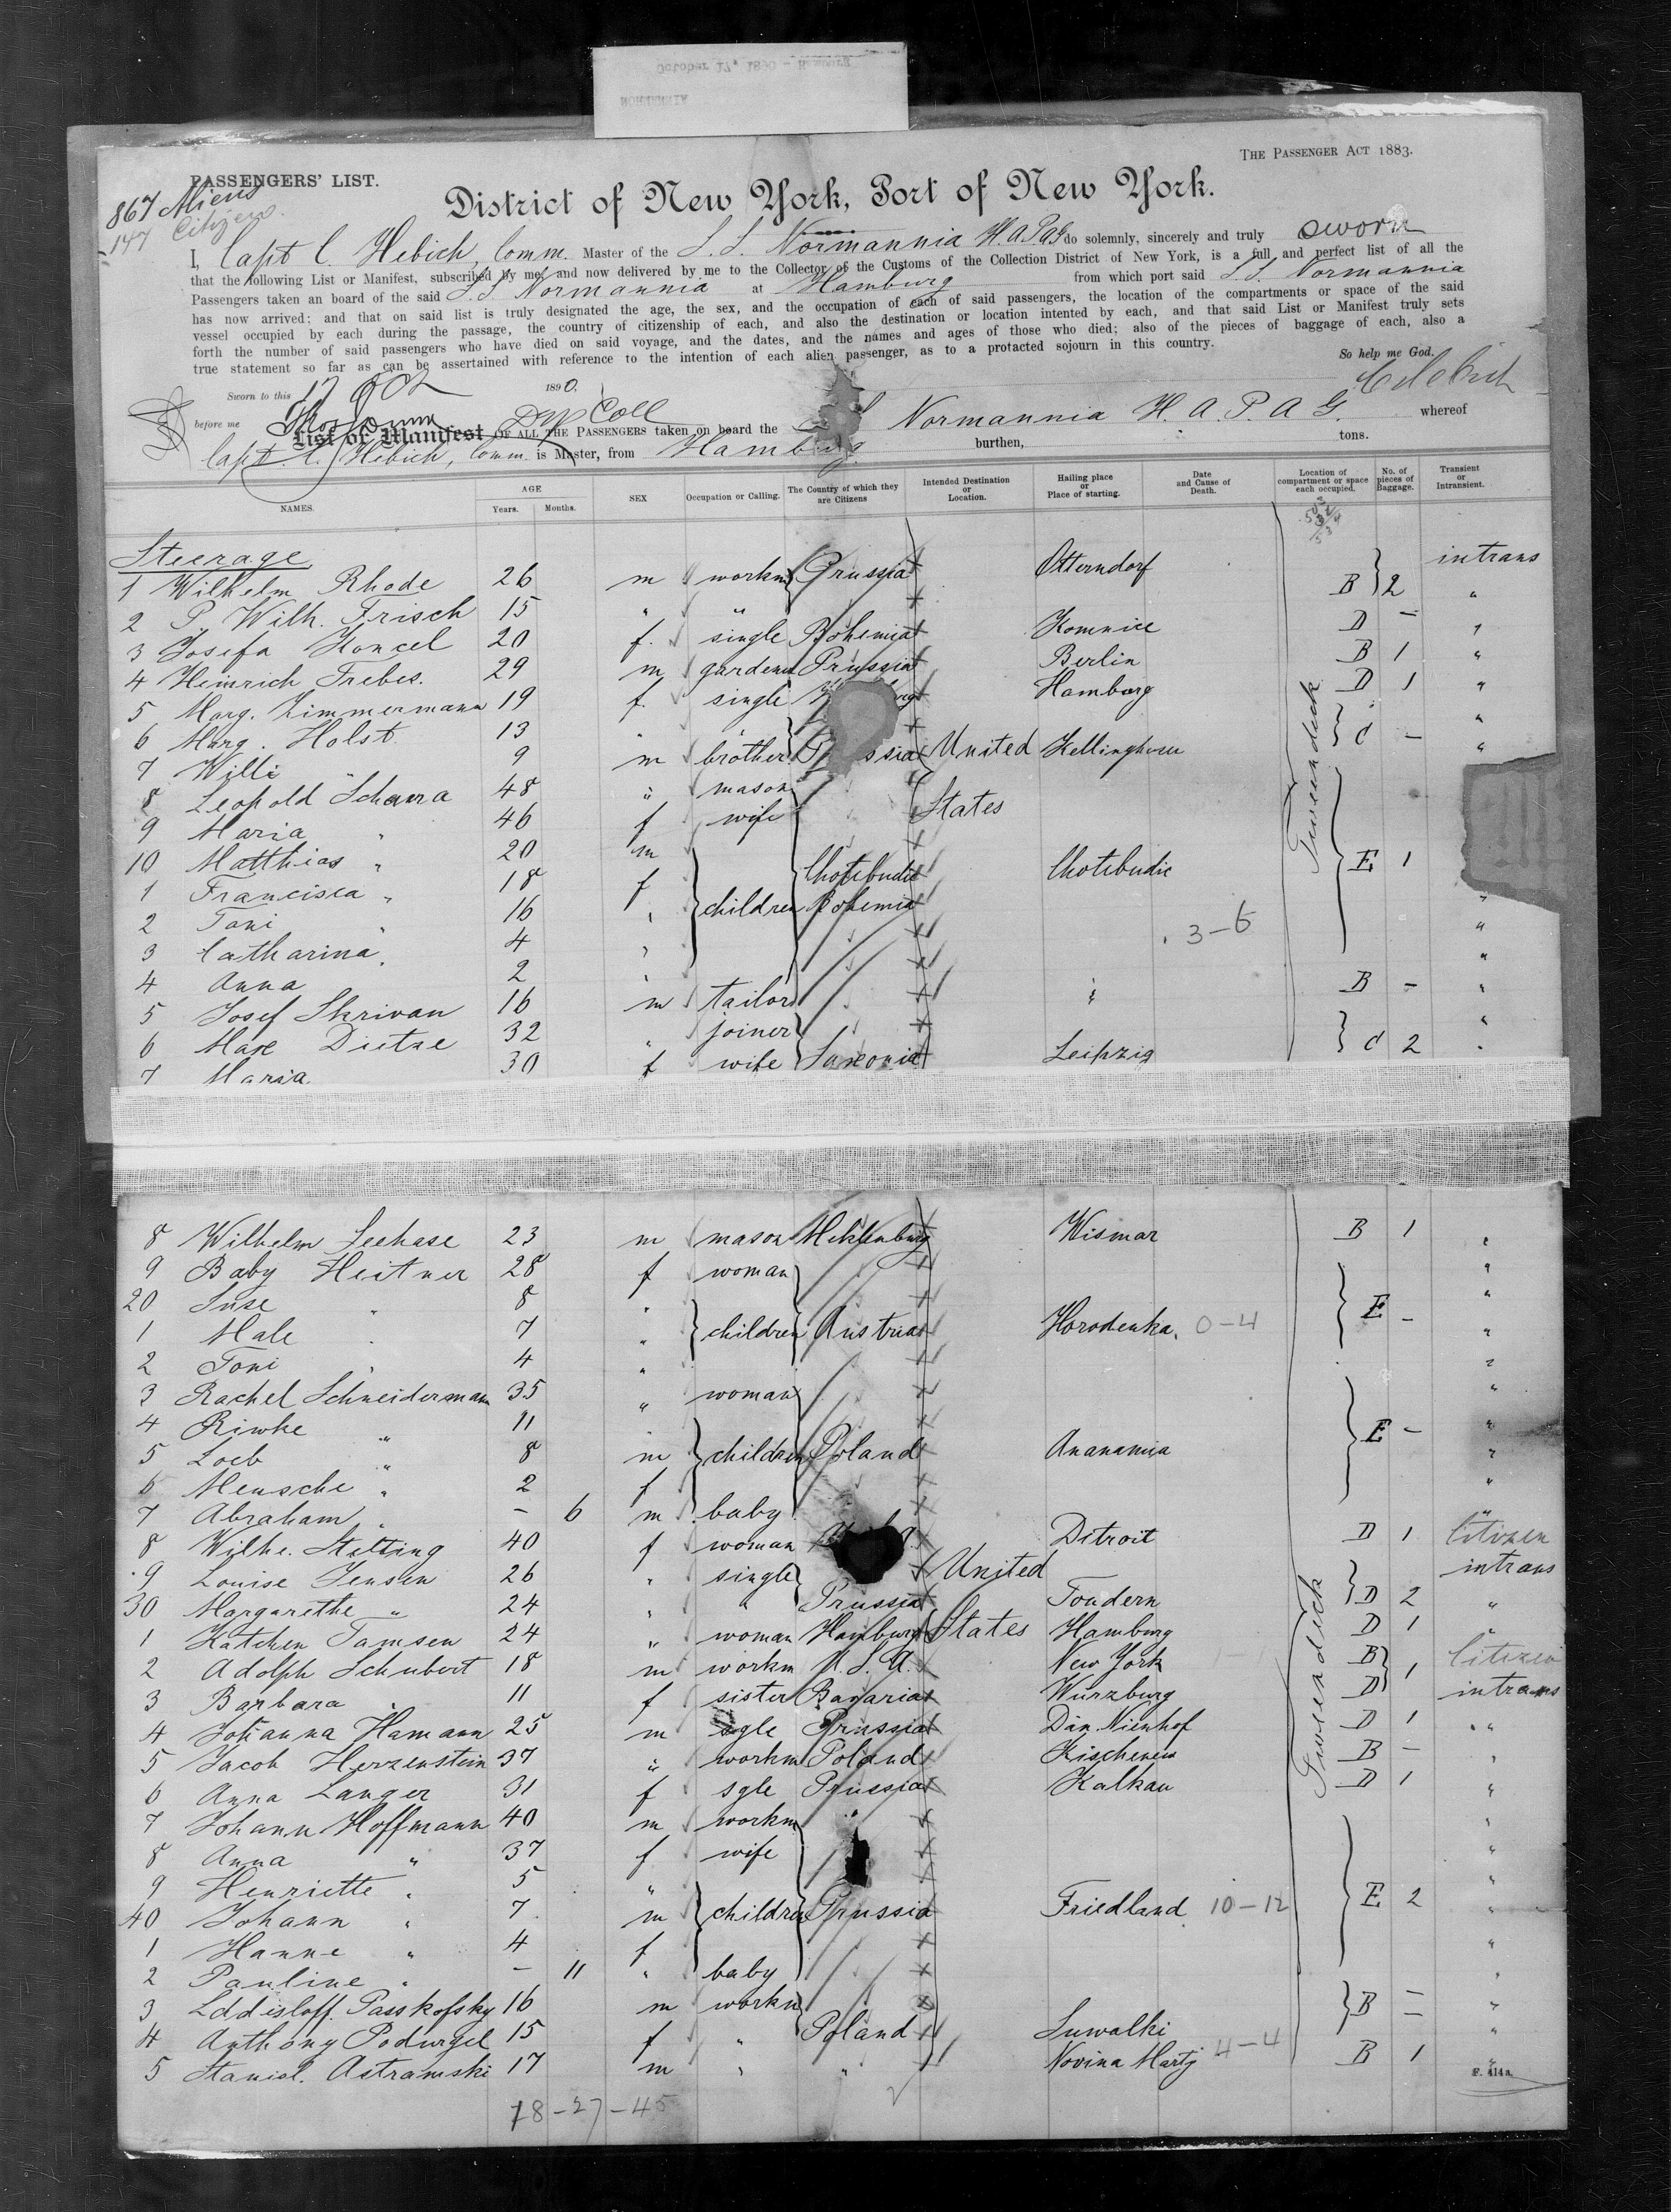 October 17, 1890 - Hamburg
NORMANNIA
THE PASSENGER ACT 1883.
PASSENGERS' LIST.
867 Aliens
147 Citizens.
District of New York, Port of New York.
I, Capt C. Hebich, Comm. Master of the S. S. Normannia H.A.P.A.G do solemnly, sincerely and truly sworn
that the following List or Manifest, subscribed by me, and now delivered by me to the Collector of the Customs of the Collection District of New York, is a full and perfect list of all the
Passengers taken an board of the said S.S Normannia at Hamburg from which port said S.S. Normannia
has now arrived; and that on said list is truly designated the age, the sex, and the occupation of each of said passengers, the location of the compartments or space of the said
vessel occupied by each during the passage, the country of citizenship of each, and also the destination or location intented by each, and that said List or Manifest truly sets
forth the number of said passengers who have died on said voyage, and the dates, and the names and ages of those who died; also of the pieces of baggage of each, also a
true statement so far as can be assertained with reference to the intention of each alien passenger, as to a protacted sojourn in this country.
So help me God.
Sworn to this 17 Oct 1890.
C Hebich
before me
D Coll
List or Manifest OF ALL THE PASSENGERS taken on board the Normannia H. A. P. A. G. whereof
Capt. C. Hebich, Comm. is Master, from Hamburg burthen, tons.
NAMES. AGE Years. Months. SEX Occupation or Calling. The Country of which they are Citizens Intended Destination or Location. Hailing place or Place of starting. Date and Cause of Death. Location of compartment or space each occupied. No. of pieces of Baggage. Transient or Intransient.
Steerage
1 Wilhelm Rhode 26 m workm Prussia Otterndorf B 2 intrans
2 P. Wilh. Frisch 15 " " "
3 Josefa Koncel 20 f. single Bohemia Komnice D - "
4 Heinrich Trebes. 29 m gardener Prussia Berlin B 1 "
5 Marg. Zimmermann 19 f. single Hamburg D 1 "
6 Marg. Holst 13 "
7 Willi " 9 m brother United Kellinghusen C - "
8 Leopold Schama 48 " mason
9 Maria " 46 f wife States
10 Matthias " 20 m
1 Francisca " 18 f Chotebudic Chotebudic E 1
2 Toni " 16 " children Bohemia "
3 Catharina " 4 " 3-6 "
4 Anna 2 " "
5 Josef Skrivan 16 m tailor " B - "
6 Max Dietze 32 " joiner "
7 Maria 30 f wife Saxonia Leipzig C 2 "
8 Wilhelm Seehase 23 m mason Meklenburg Wismar B 1 "
9 Baby Heitner 28 f woman "
20 Suse " 8 " "
1 Male " 7 " children Austria Horodenka. 0-4 E - "
2 Toni " 4 " "
3 Rachel Schneidermann 35 " woman "
4 Riwke " 11 " "
5 Loeb " 8 m children Poland Ananamia E - "
6 Mensche " 2 f "
7 Abraham " - 6 m baby "
8 Wilhe. Stelting 40 f woman Ditroit D 1 Citizen
9 Louise Jensen 26 " single United intrans
30 Margarethe " 24 " " Prussia Tondern D 2 "
1 Katchen Tamsen 24 " woman Hamburg States Hamburg D 1 "
2 Adolph Schubert 18 m workm U.S.A. New York B 1 Citizen
3 Barbara " 11 f sister Bavaria Wurzburg D intrans
4 Johanna Hamann 25 m sgle Prussia Dän Nienhof D 1 "
5 Jacob Herzenstein 37 " workm Poland Kischenew B - "
6 Anna Langer 31 f sgle Prussia Kalkau D 1 "
7 Johann Hoffmann 40 m workm " "
8 Anna " 37 f wife "
9 Henriette " 5 " "
40 Johann " 7 m children Prussia Friedland 10-12 E 2 "
1 Hanne " 4 f "
2 Pauline " - 11 " baby "
3 Lddisloff. Passkofsky 16 m workm B - "
4 Anthony Podurgel 15 f " Poland Suwalki - "
5 Stanisl. Astramski 17 m " " Novina Martj 4-4 B 1 "
18-27-45
F. 414a.